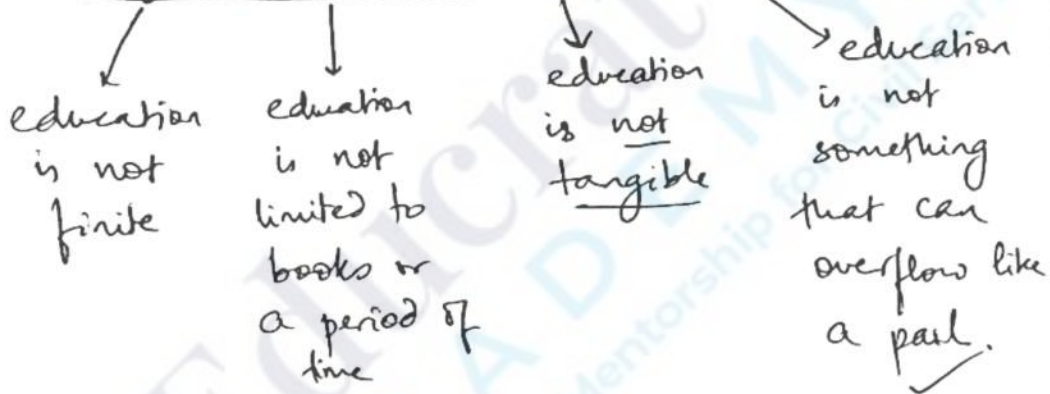 education
is not
finite
education
is not
limited to
books or
a period of
time
education
is not
tangible
education
is not
something
that can
overflow like
a pail.
Educrat
ADEMY
Mentorship for Civil Ser